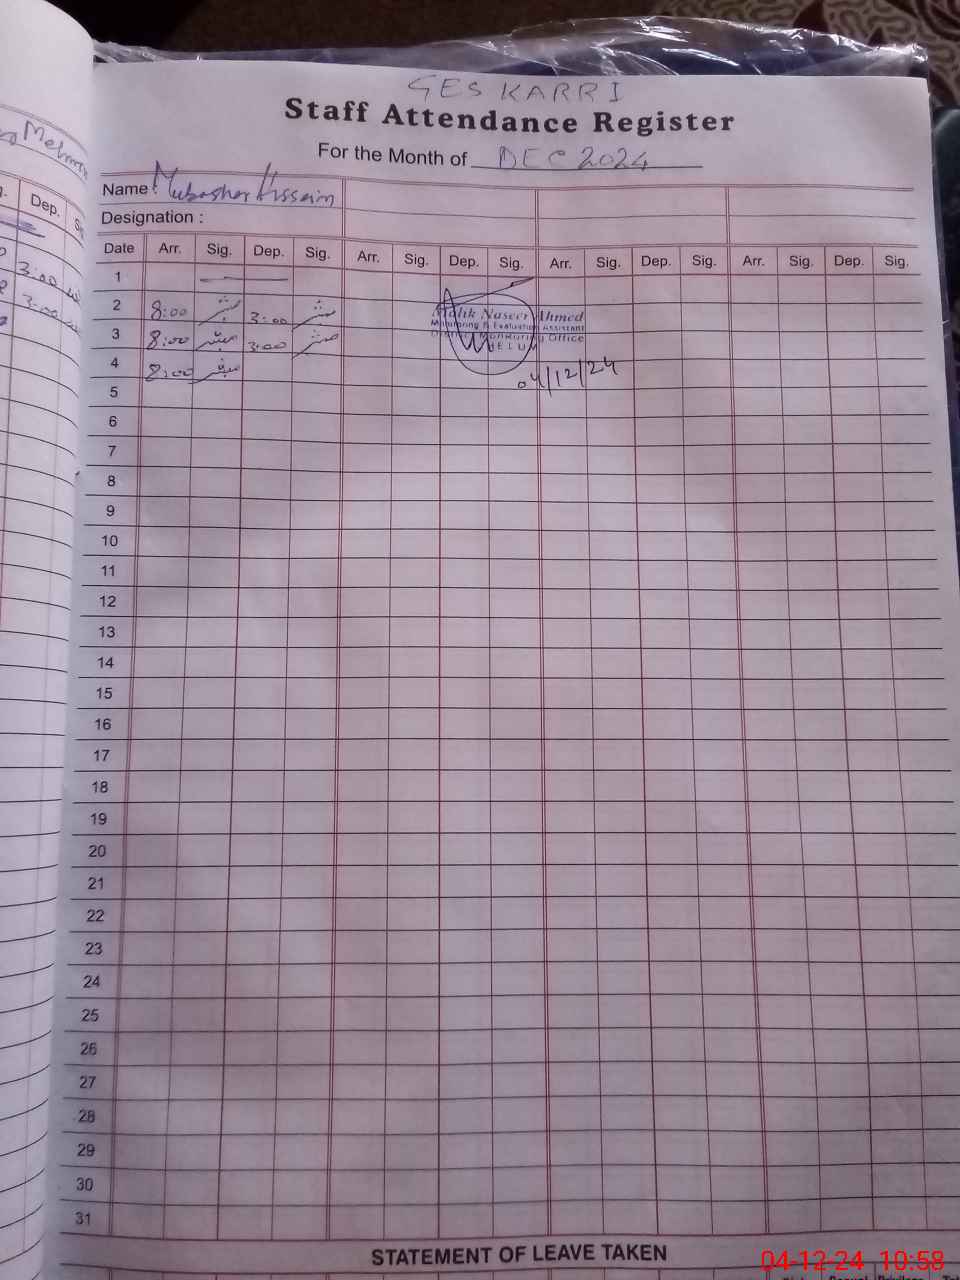 GES KARRI
Staff Attendance Register
For the Month of DEC 2024
Name : Mubashar Hssain
Designation :
Date Arr. Sig. Dep. Sig. Arr. Sig. Dep. Sig. Arr. Sig. Dep. Sig. Arr. Sig. Dep. Sig.
1
2 8:00 مبشر 3:00 مبشر
3 8:00 مبشر 3:00 مبشر
4 8:00 مبشر
Malik Naseer Ahmed
Monitoring & Evaluation Assistant
District Monitoring Office
JHELUM
04/12/24
5
6
7
8
9
10
11
12
13
14
15
16
17
18
19
20
21
22
23
24
25
26
27
28
29
30
31
STATEMENT OF LEAVE TAKEN
04-12-24 10:58
Dep.
3:00
3:00